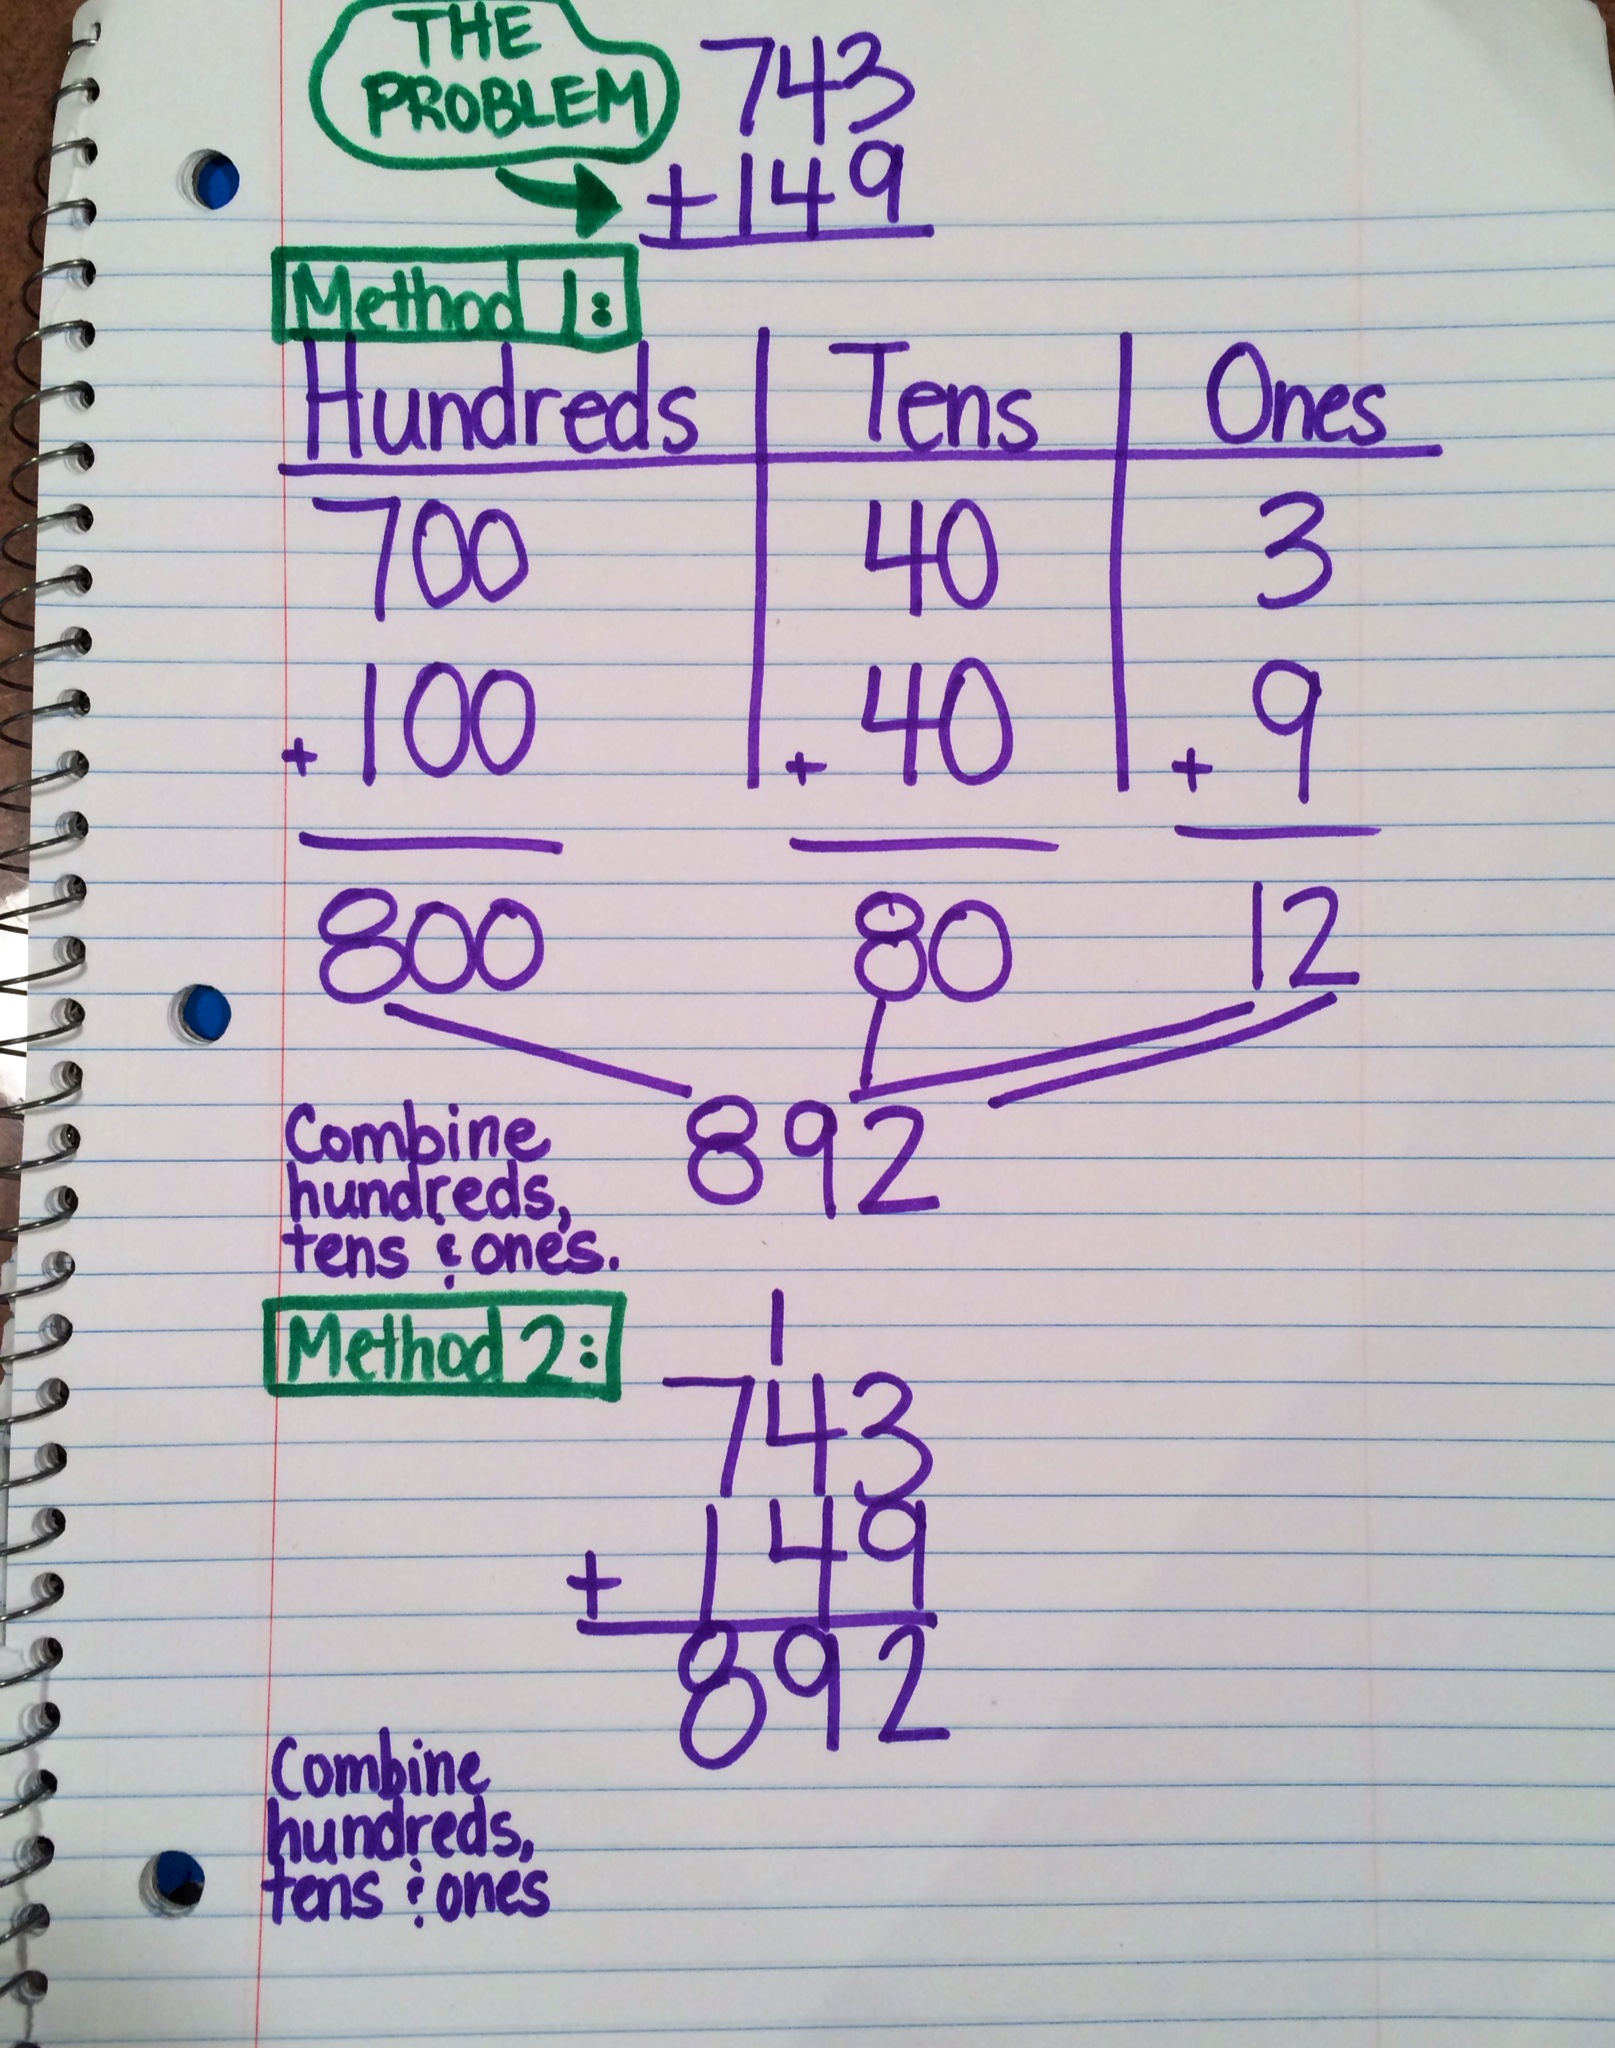 THE
PROBLEM
743
+149
Method 1:
Hundreds Tens Ones
700 40 3
+ 100 + 40 + 9
800 80 12
892
Combine
hundreds,
tens & ones.
Method 2:
1
743
+ 149
892
Combine
hundreds,
tens & ones